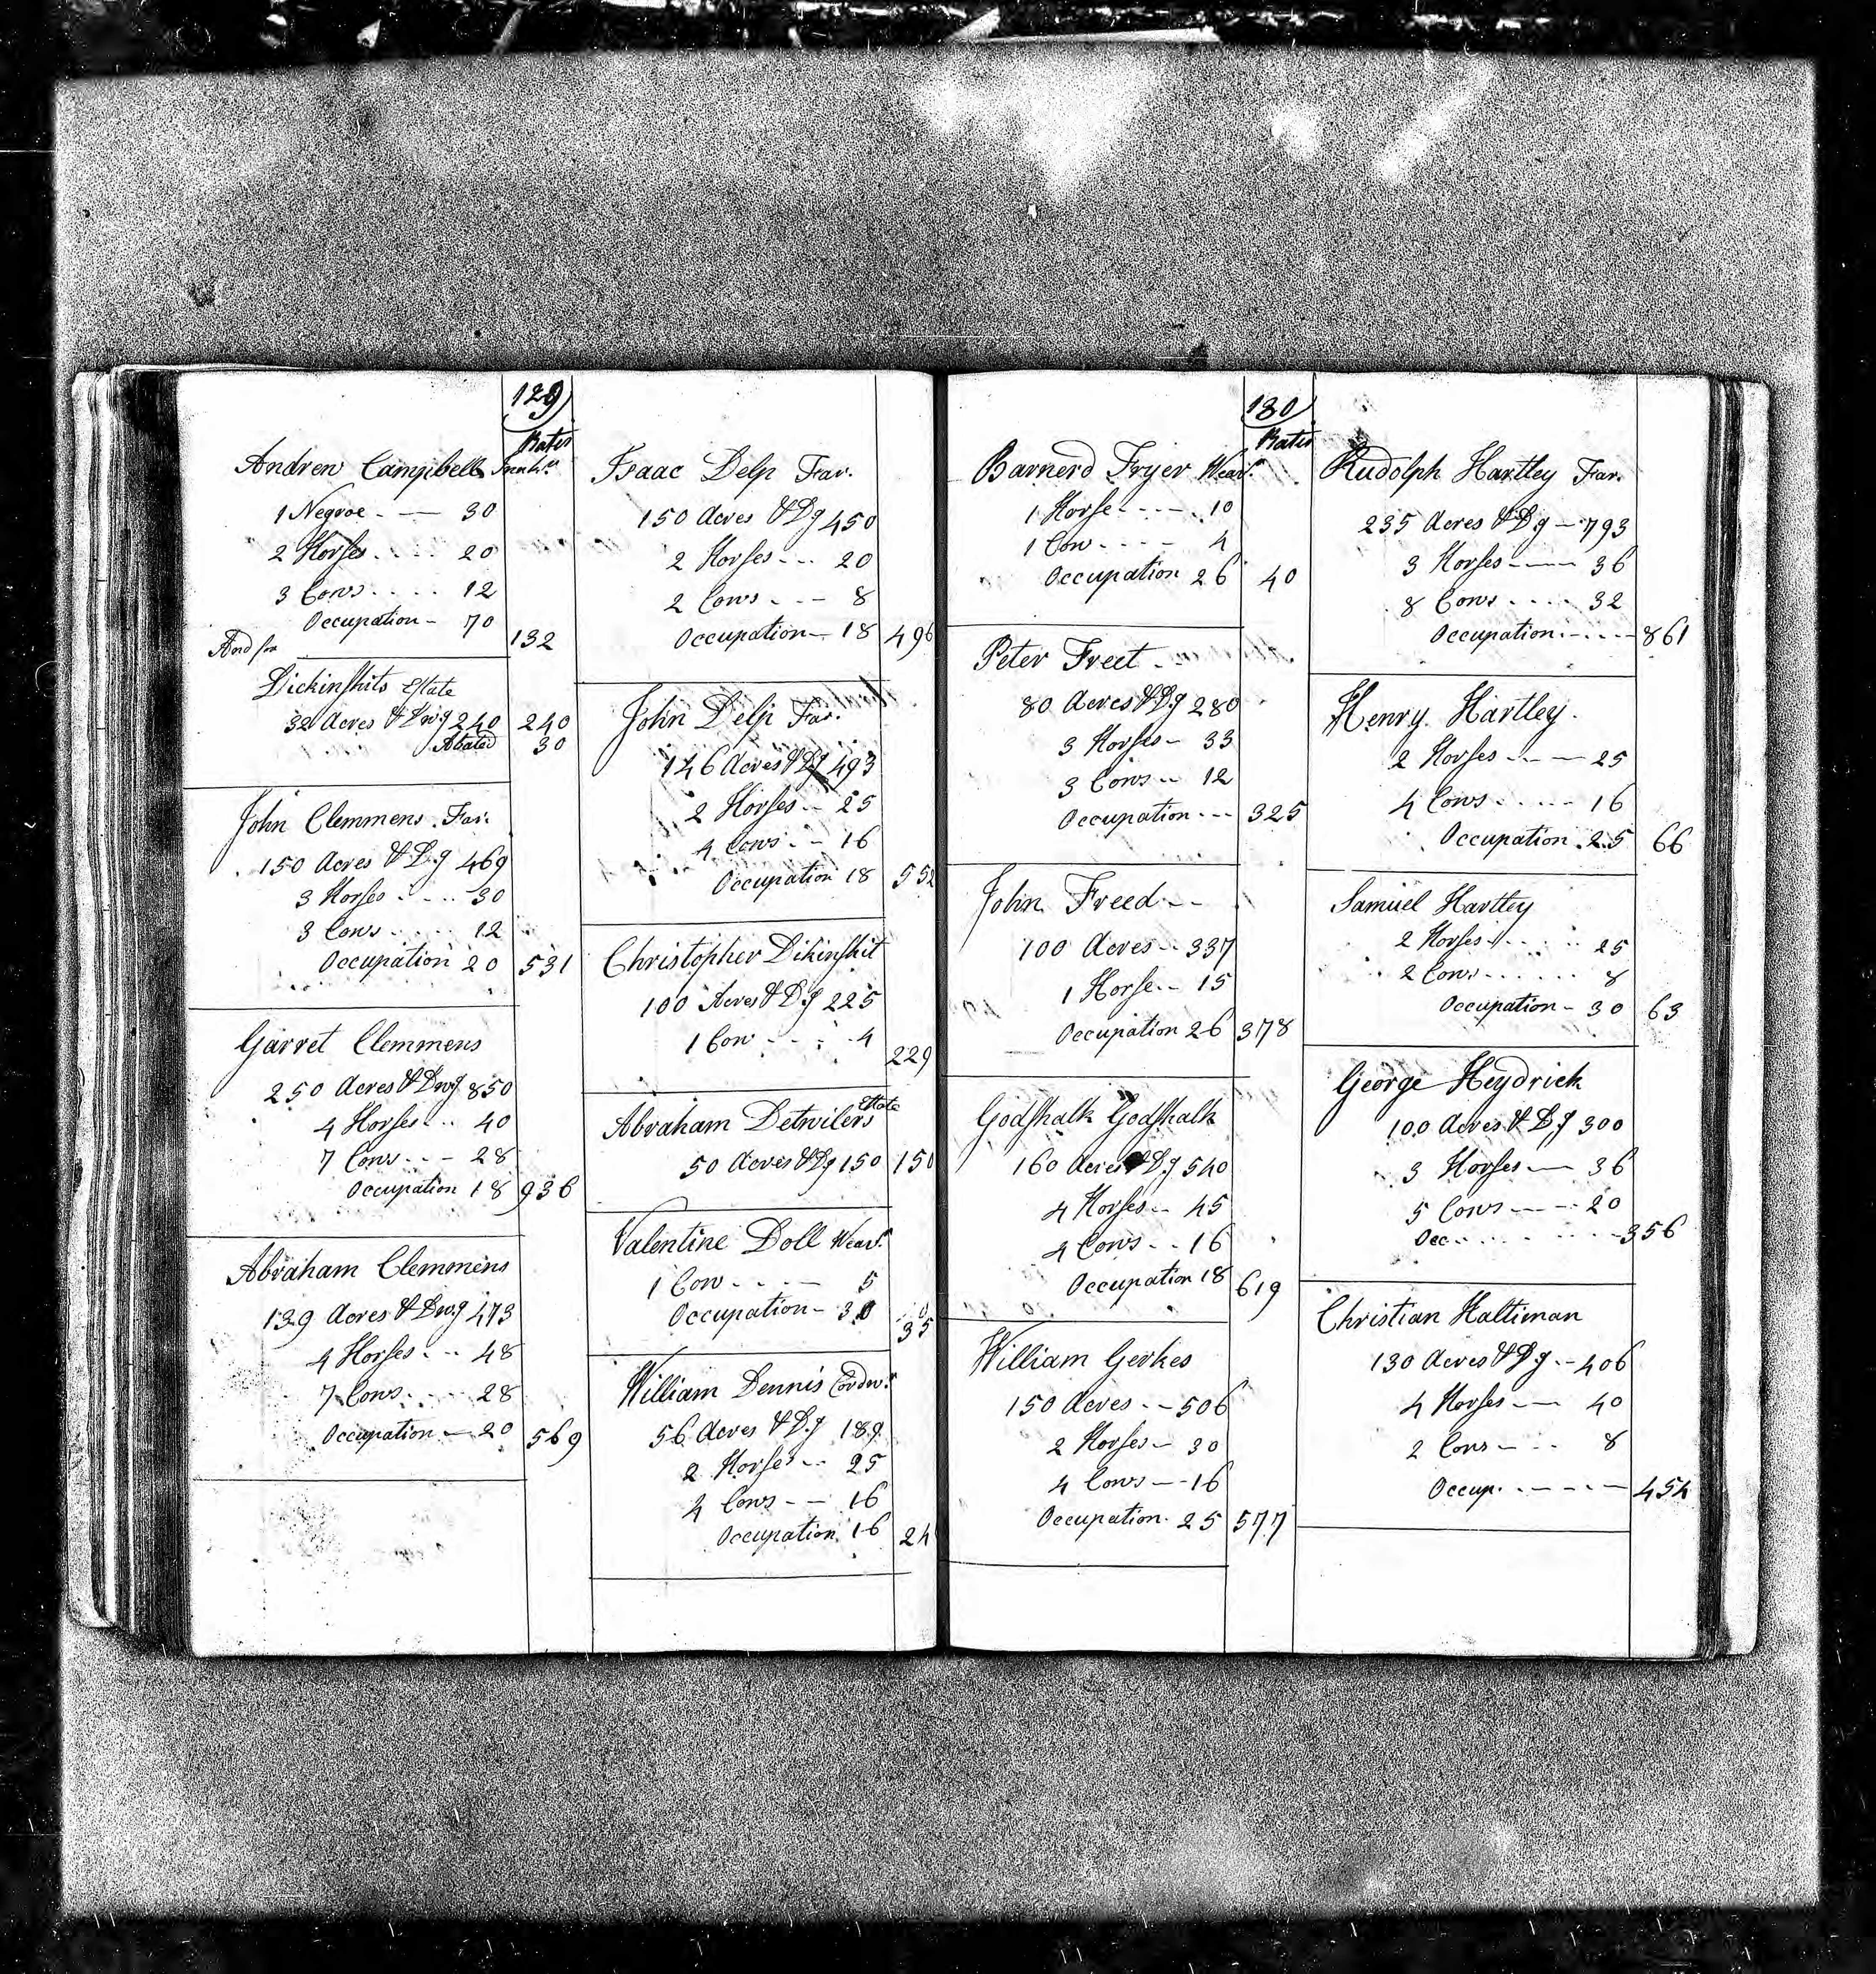 129
Rates
Andrew Campbell Innkr.
1 Negroe - — 30
2 Horses - - - - 20
3 Cows - - - - 12
Occupation - 70 132
And for
Dickinshits Estate
32 Acres & Dwg 240 240
Abated 30
John Clemmens Far.
150 Acres & D.g 469
3 Horses - - - - 30
3 Cows - - - - 12
Occupation 20 531
Garret Clemmens
250 Acres & Dwg. 850
4 Horses - - 40
7 Cows - - - 28
Occupation 18 936
Abraham Clemmens
139 Acres & Dwg 473
4 Horses - - - 48
7 Cows - - - - 28
Occupation — 20 569
Isaac Delp Far.
150 Acres & D.g 450
2 Horses - - - 20
2 Cows - - - 8
Occupation — 18 496
John Delp Far.
146 Acres & D.g 493
2 Horses - - 25
4 Cows - - 16
Occupation 18 552
Christopher Dikinshit
100 Acres & D.g 225
1 Cow - - - - 4
229
Abraham Detwilers Estate
50 Acres & Dg 150 150
Valentine Doll Weavr.
1 Cow - - - — 5
Occupation - 30
35
William Dennis Cordwr.
56 Acres & D.g 189
2 Horses - - 25
4 Cows - - 16
Occupation 16 24
130
Rates
Barnerd Fryer Weavr.
1 Horse - - - - 10
1 Cow - - - - 4
Occupation 26 40
Peter Freet -
80 Acres & D.g 280
3 Horses - 33
3 Cows - - 12
Occupation - - - 325
John Freed - -
100 Acres - - 337
1 Horse - - 15
Occupation 26 378
Godshalk Godshalk
160 Acres & D.g 540
4 Horses - - 45
4 Cows - - 16
Occupation 18 619
William Gerhes
150 Acres - - 506
2 Horses - 30
4 Cows — - 16
Occupation - 25 577
Rudolph Hartley Far.
235 Acres & D.g — 793
3 Horses - — 36
8 Cows - - - - 32
Occupation - - - - - 861
Henry Hartley.
2 Horses - - — 25
4 Cows - - - - - 16
Occupation 25 66
Samuel Hartley
2 Horses - - - - - 25
2 Cows - - - - - - 8
Occupation - 30 63
George Heydrick
100 Acres & D.g 300
3 Horses — 36
5 Cows - — - 20
Occ. - - - - - - - 356
Christian Haltiman
130 Acres & D.g - - 406
4 Horses - — 40
2 Cows - - - 8
Occup. - - - - — 454